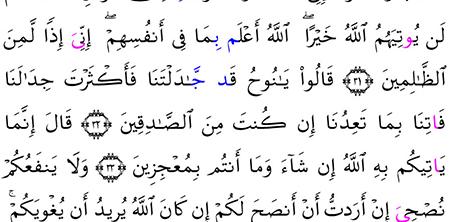 لَن يُوتِيَهُمُ ٱللَّهُ خَيْرًا ۖ ٱللَّهُ أَعْلَم بِمَا فِى أَنفُسِهِمْ ۖ إِنِّىَ إِذًا لَّمِنَ
ٱلظَّـٰلِمِينَ ٣١ قَالُوا۟ يَـٰنُوحُ قَد جَّـٰدَلْتَنَا فَأَكْثَرْتَ جِدَٰلَنَا
فَاتِنَا بِمَا تَعِدُنَا إِن كُنتَ مِنَ ٱلصَّـٰدِقِينَ ٣٢ قَالَ إِنَّمَا
يَاتِيكُم بِهِ ٱللَّهُ إِن شَآءَ وَمَا أَنتُم بِمُعْجِزِينَ ٣٣ وَلَا يَنفَعُكُمْ
نُصْحِىَ إِنْ أَرَدتُّ أَنْ أَنصَحَ لَكُمْ إِن كَانَ ٱللَّهُ يُرِيدُ أَن يُغْوِيَكُمْ ۚ